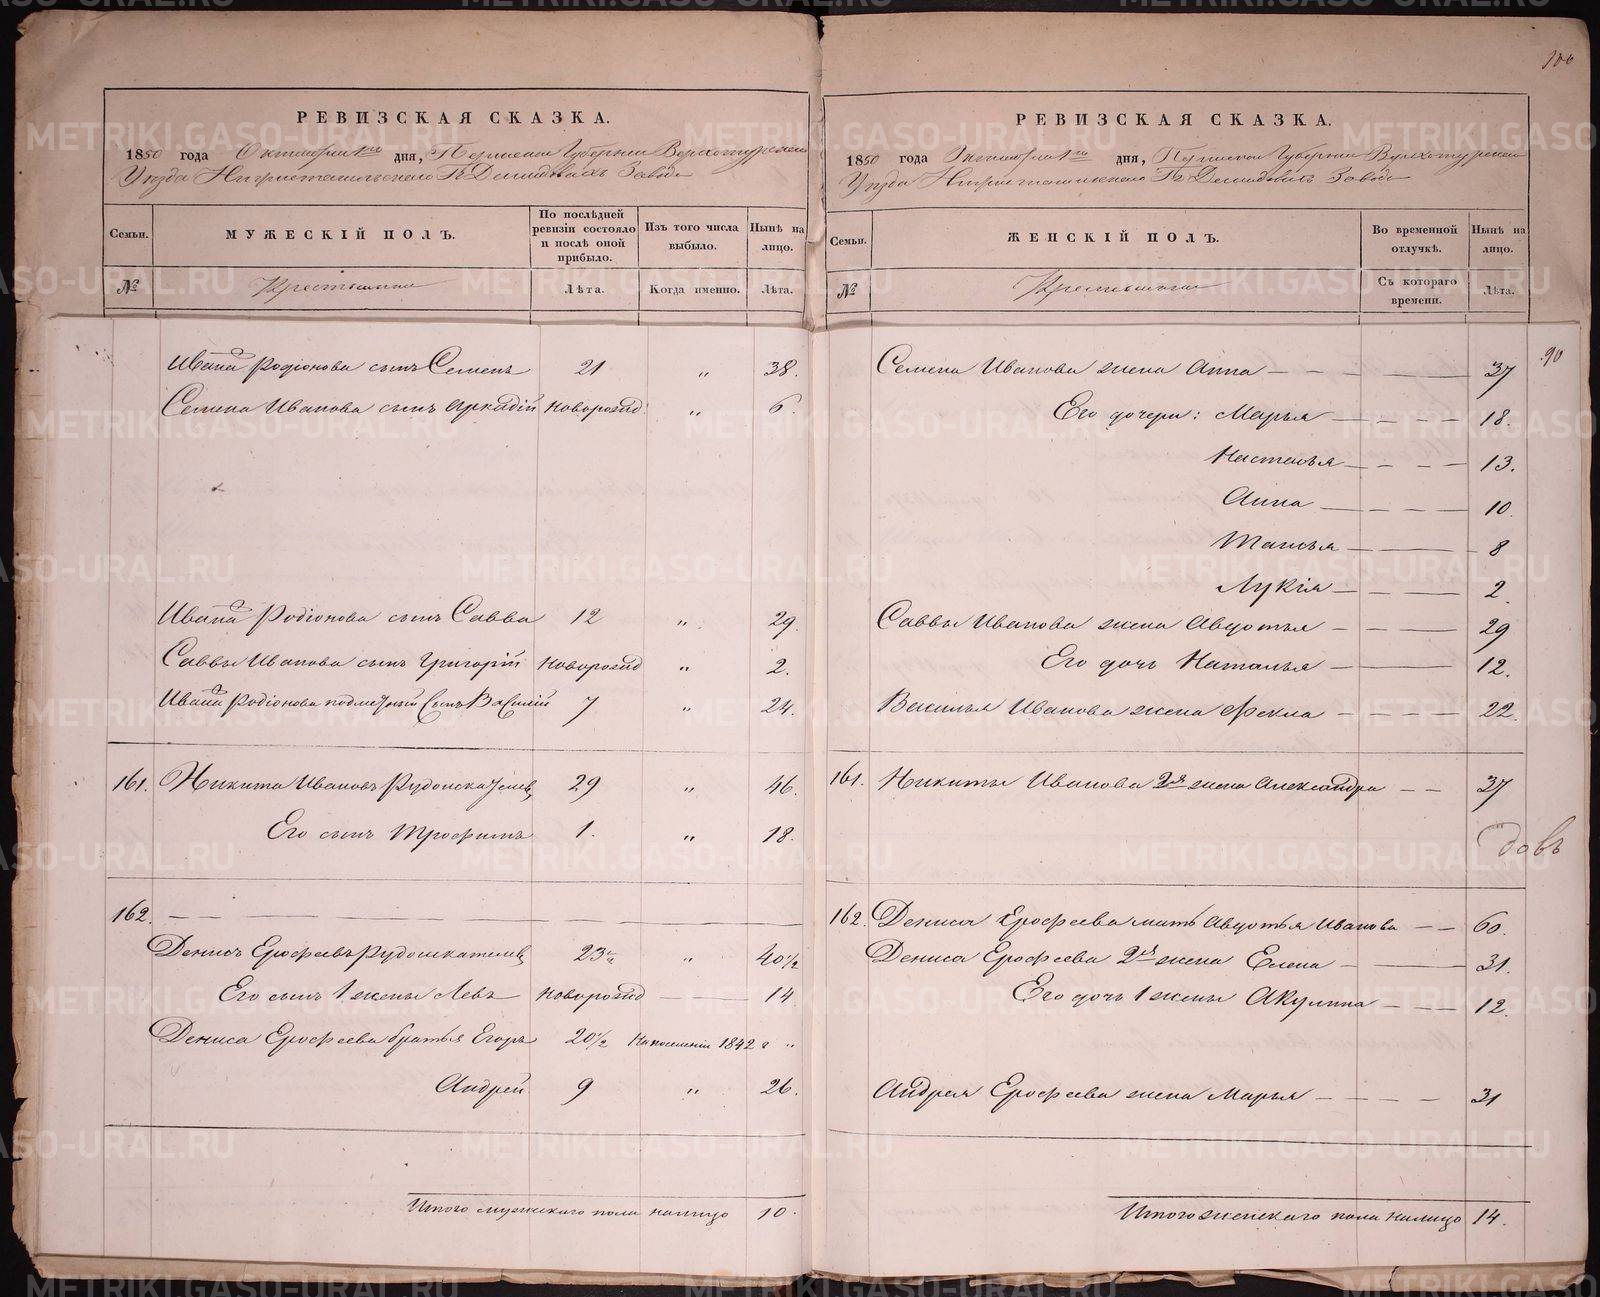 100
РЕВИЗСКАЯ СКАЗКА.
1850 года Октября 1го дня, Пермской Губерніи Верхотурскаго
Уѣзда Нижнетагильскаго Гг. Демидовыхъ Завода
Семьи. МУЖЕСКІЙ ПОЛЪ. По послѣдней ревизіи состояло и послѣ оной прибыло. Изъ того числа выбыло. Нынѣ на лицо.
№ Крестьяне Лѣта. Когда именно. Лѣта.
Ивана Родіонова сынъ Семенъ 21 " 38.
Семена Иванова сынъ Аркадій новорожд. " 6.
Ивана Родіонова сынъ Савва 12 " 29.
Саввы Иванова сынъ Григорій новорожд " 2.
Ивана Родіонова сынъ Василій 7 " 24.
161. Никита Ивановъ 29 " 46.
Его сынъ Трофимъ 1. " 18.
162. — —
Денисъ Ерофеевъ 23 1/2 " 40 1/2
Его сынъ 1 жены Левъ новорожд — — 14
Дениса Ерофеева братья Егоръ 20 1/2 На поселеніи 1842 г "
Андрей 9 " 26.
Итого мужескаго пола налицо 10.
РЕВИЗСКАЯ СКАЗКА.
1850 года Октября 1го дня, Пермской Губерніи Верхотурскаго
Уѣзда Нижнетагильскаго Гг. Демидовыхъ Завода
Семьи. ЖЕНСКІЙ ПОЛЪ. Во временной отлучкѣ. Нынѣ на лицо.
№ Крестьянки Съ котораго времени. Лѣта.
90
Семена Иванова жена Анна — — — 37
Его дочери: Марья — — — 18.
Настасья — — — 13.
Анна — — — 10.
Таисья — — — 8
Лукія — — — 2.
Саввы Иванова жена Авдотья — — — 29
Его дочь Наталья — — 12.
Василья Иванова жена Фекла — — — 22.
161. Никиты Иванова 2я жена Александра — — 37
довъ
162. Дениса Ерофеева мать Авдотья Иванова — — 60.
Дениса Ерофеева 2я жена Елена — — 31.
Его дочь 1 жены Акулина — — — 12.
Андрея Ерофеева жена Марья — — — 31
Итого женскаго пола налицо 14.
METRIKI.GASO-URAL.RU